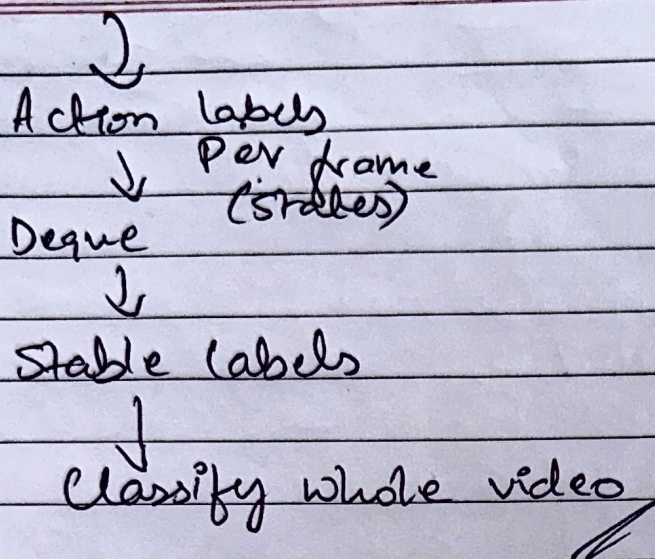 Action labels
Per frame
(states)
Deque
Stable labels
Classify whole video